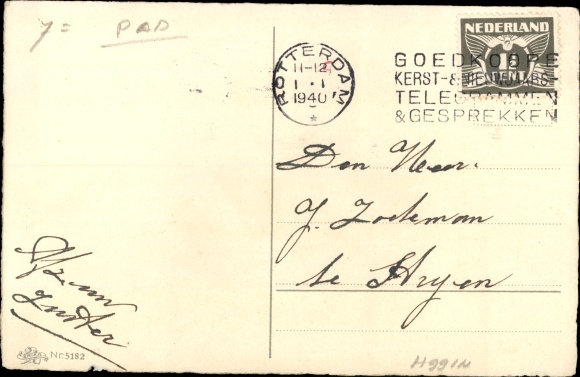 y = PAD
NEDERLAND
ROTTERDAM
11-12
1.1
1940
GOEDKOOPE
KERST-& NIEUWJAARS-
TELEGRAMMEN
& GESPREKKEN
Den Heer.
J. Zoeteman
te Stryen
Zuster
Nr. 5182
H991N